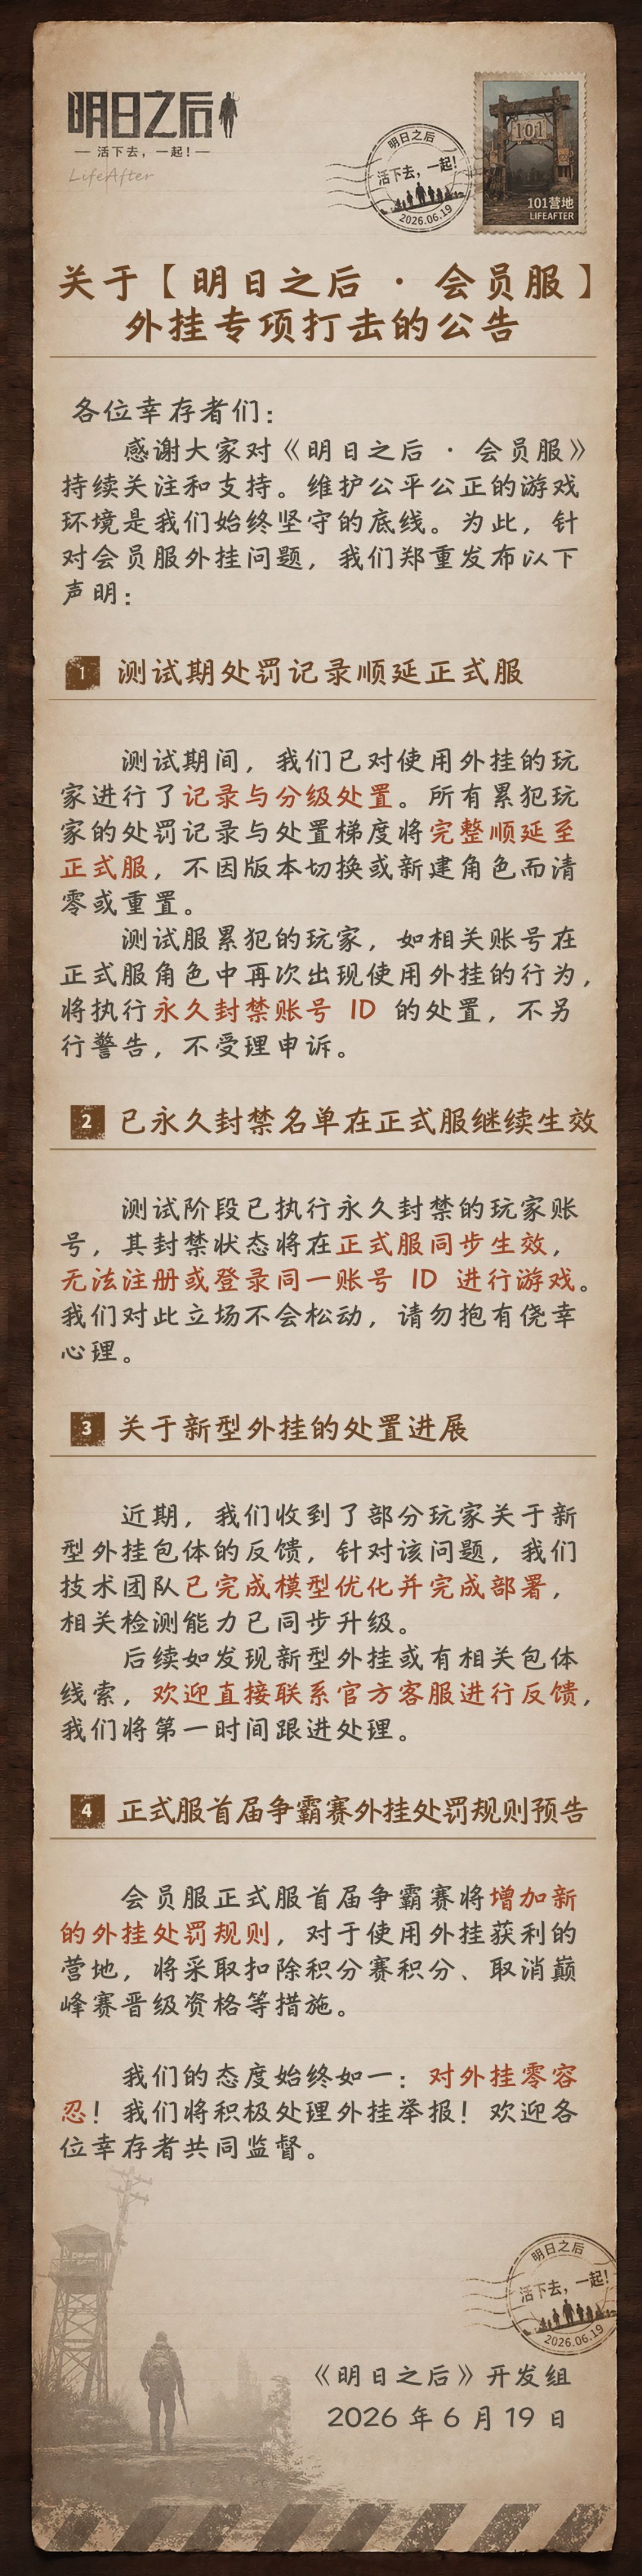 明日之后
— 活下去，一起！—
LifeAfter
明日之后
活下去，一起！
2026.06.19
101
101营地
LIFEAFTER
关于【明日之后 · 会员服】
外挂专项打击的公告
各位幸存者们：
感谢大家对《明日之后 · 会员服》
持续关注和支持。维护公平公正的游戏
环境是我们始终坚守的底线。为此，针
对会员服外挂问题，我们郑重发布以下
声明：
1 测试期处罚记录顺延正式服
测试期间，我们已对使用外挂的玩
家进行了记录与分级处置。所有累犯玩
家的处罚记录与处置梯度将完整顺延至
正式服，不因版本切换或新建角色而清
零或重置。
测试服累犯的玩家，如相关账号在
正式服角色中再次出现使用外挂的行为，
将执行永久封禁账号 ID 的处置，不另
行警告，不受理申诉。
2 已永久封禁名单在正式服继续生效
测试阶段已执行永久封禁的玩家账
号，其封禁状态将在正式服同步生效，
无法注册或登录同一账号 ID 进行游戏。
我们对此立场不会松动，请勿抱有侥幸
心理。
3 关于新型外挂的处置进展
近期，我们收到了部分玩家关于新
型外挂包体的反馈，针对该问题，我们
技术团队已完成模型优化并完成部署，
相关检测能力已同步升级。
后续如发现新型外挂或有相关包体
线索，欢迎直接联系官方客服进行反馈，
我们将第一时间跟进处理。
4 正式服首届争霸赛外挂处罚规则预告
会员服正式服首届争霸赛将增加新
的外挂处罚规则，对于使用外挂获利的
营地，将采取扣除积分赛积分、取消巅
峰赛晋级资格等措施。
我们的态度始终如一：对外挂零容
忍！我们将积极处理外挂举报！欢迎各
位幸存者共同监督。
明日之后
活下去，一起！
2026.06.19
《明日之后》开发组
2026 年 6 月 19 日